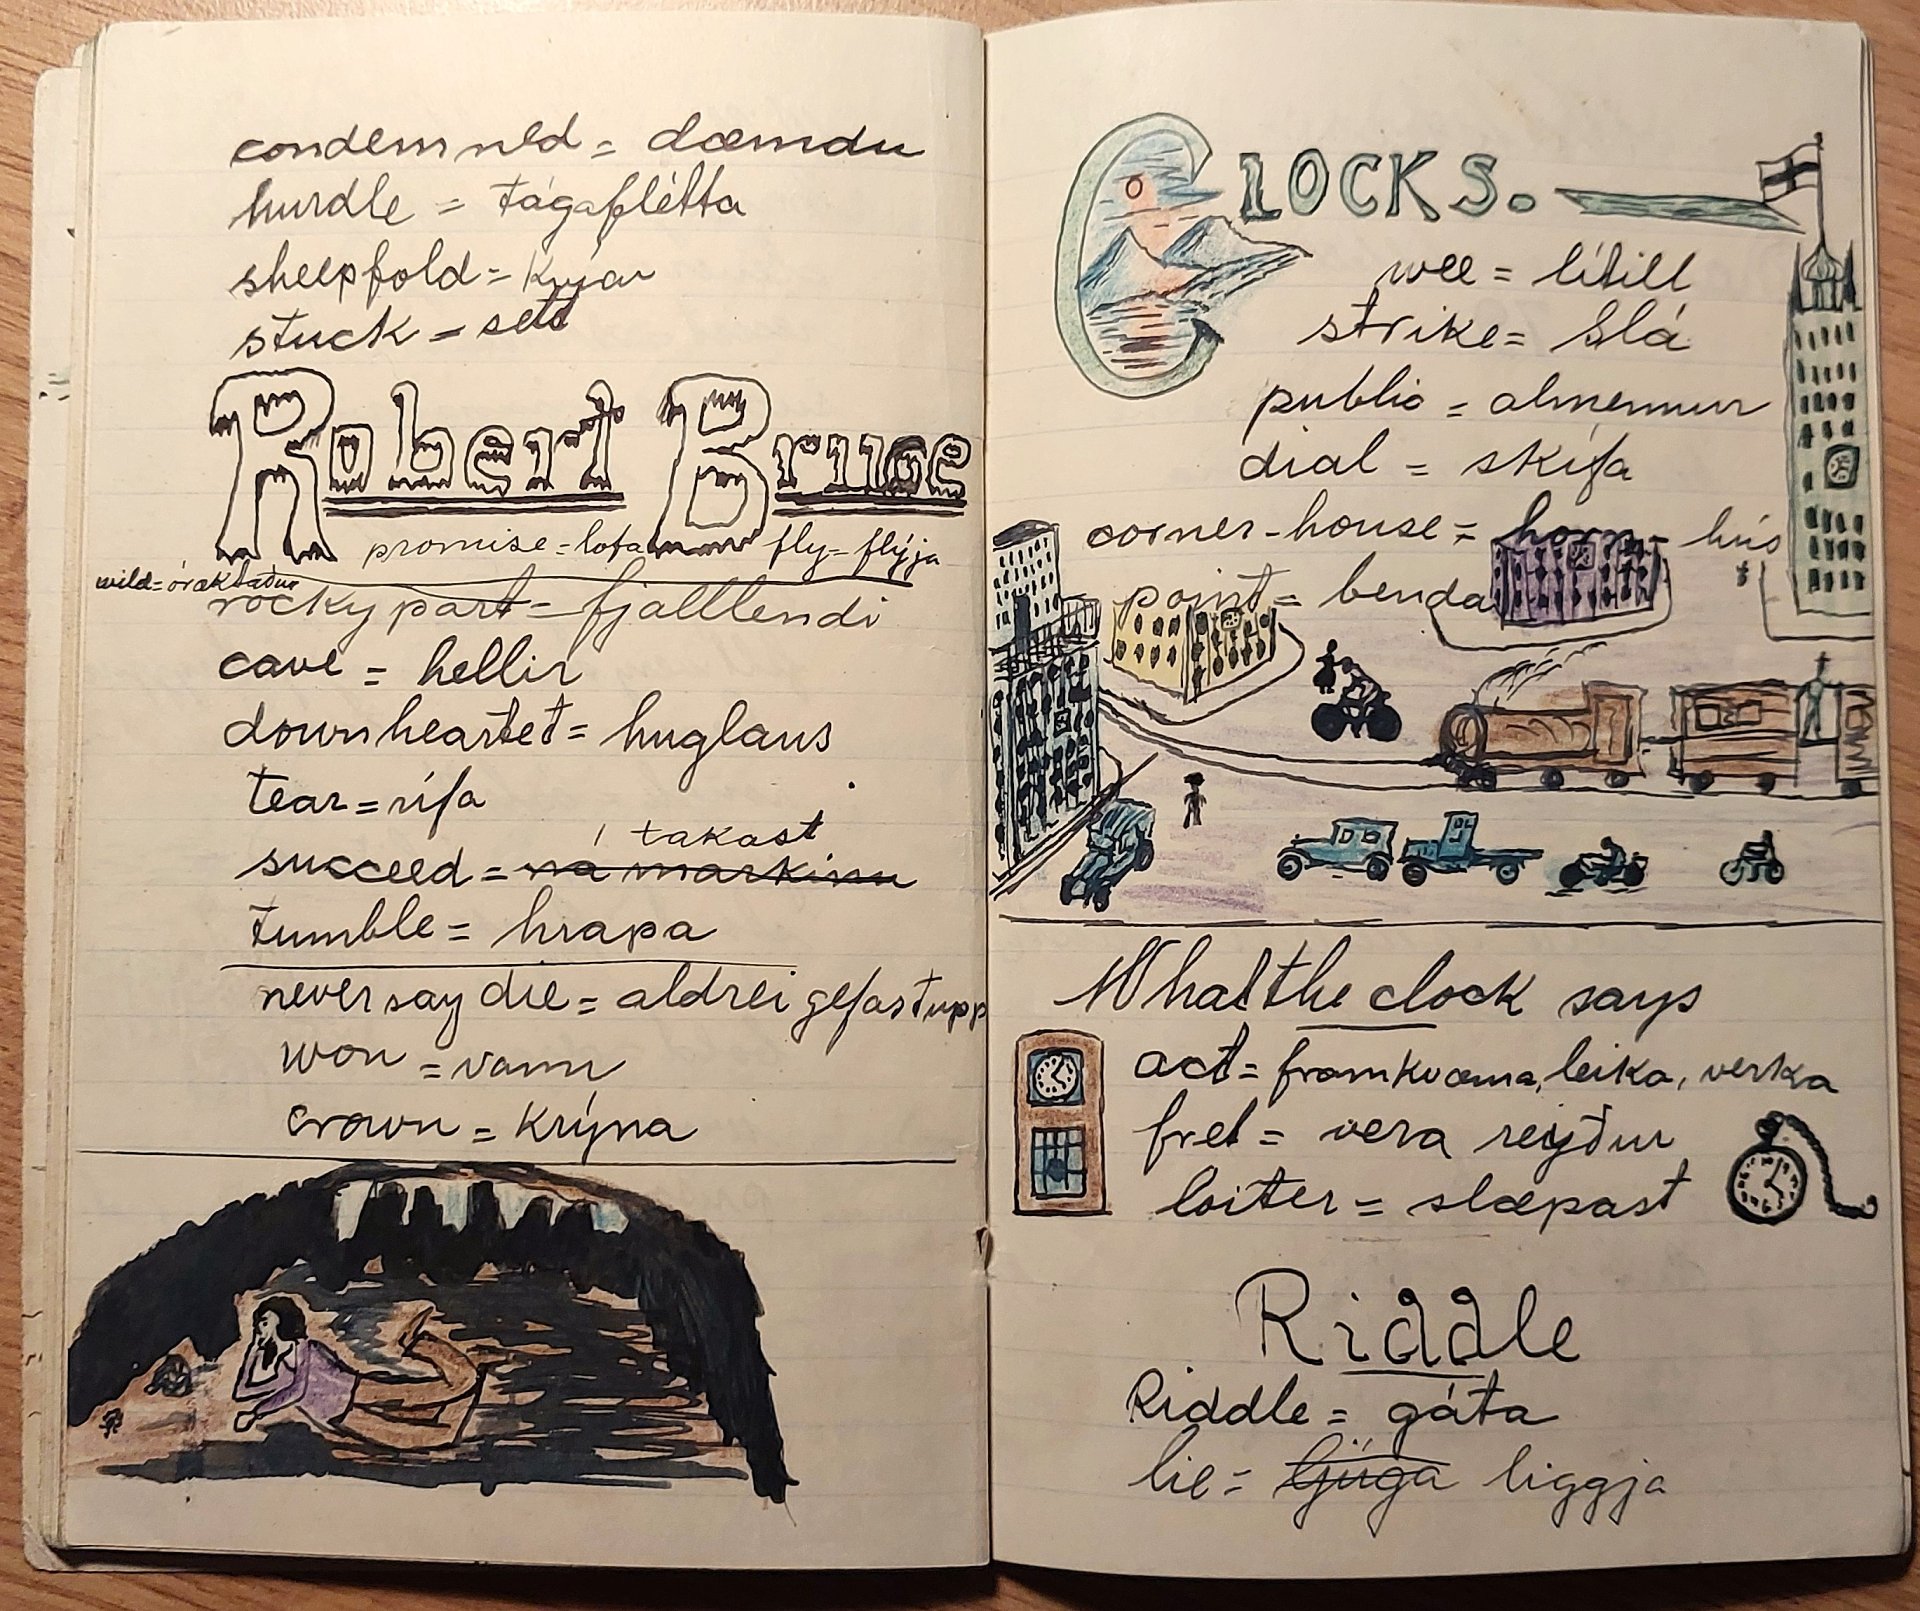 condemned = dæmdu
hurdle = tágaflétta
sheepfold = kvíar
stuck = sett
Robert Bruce
promise = lofa fly = flýja
wild = óræktaður
rocky part = fjalllendi
cave = hellir
downheartet = huglaus
tear = rífa
takast
succeed = ná markinu
tumble = hrapa
never say die = aldrei gefast upp
won = vann
crown = krýna
CLOCKS.
wee = lítill
strike = slá
public = almennur
dial = skífa
corner-house = horn - hús
point = benda
What the clock says
act = framkvæma, leika, verka
fret = vera reiður
loiter = slæpast
Riddle
Riddle = gáta
lie = ljúga liggja